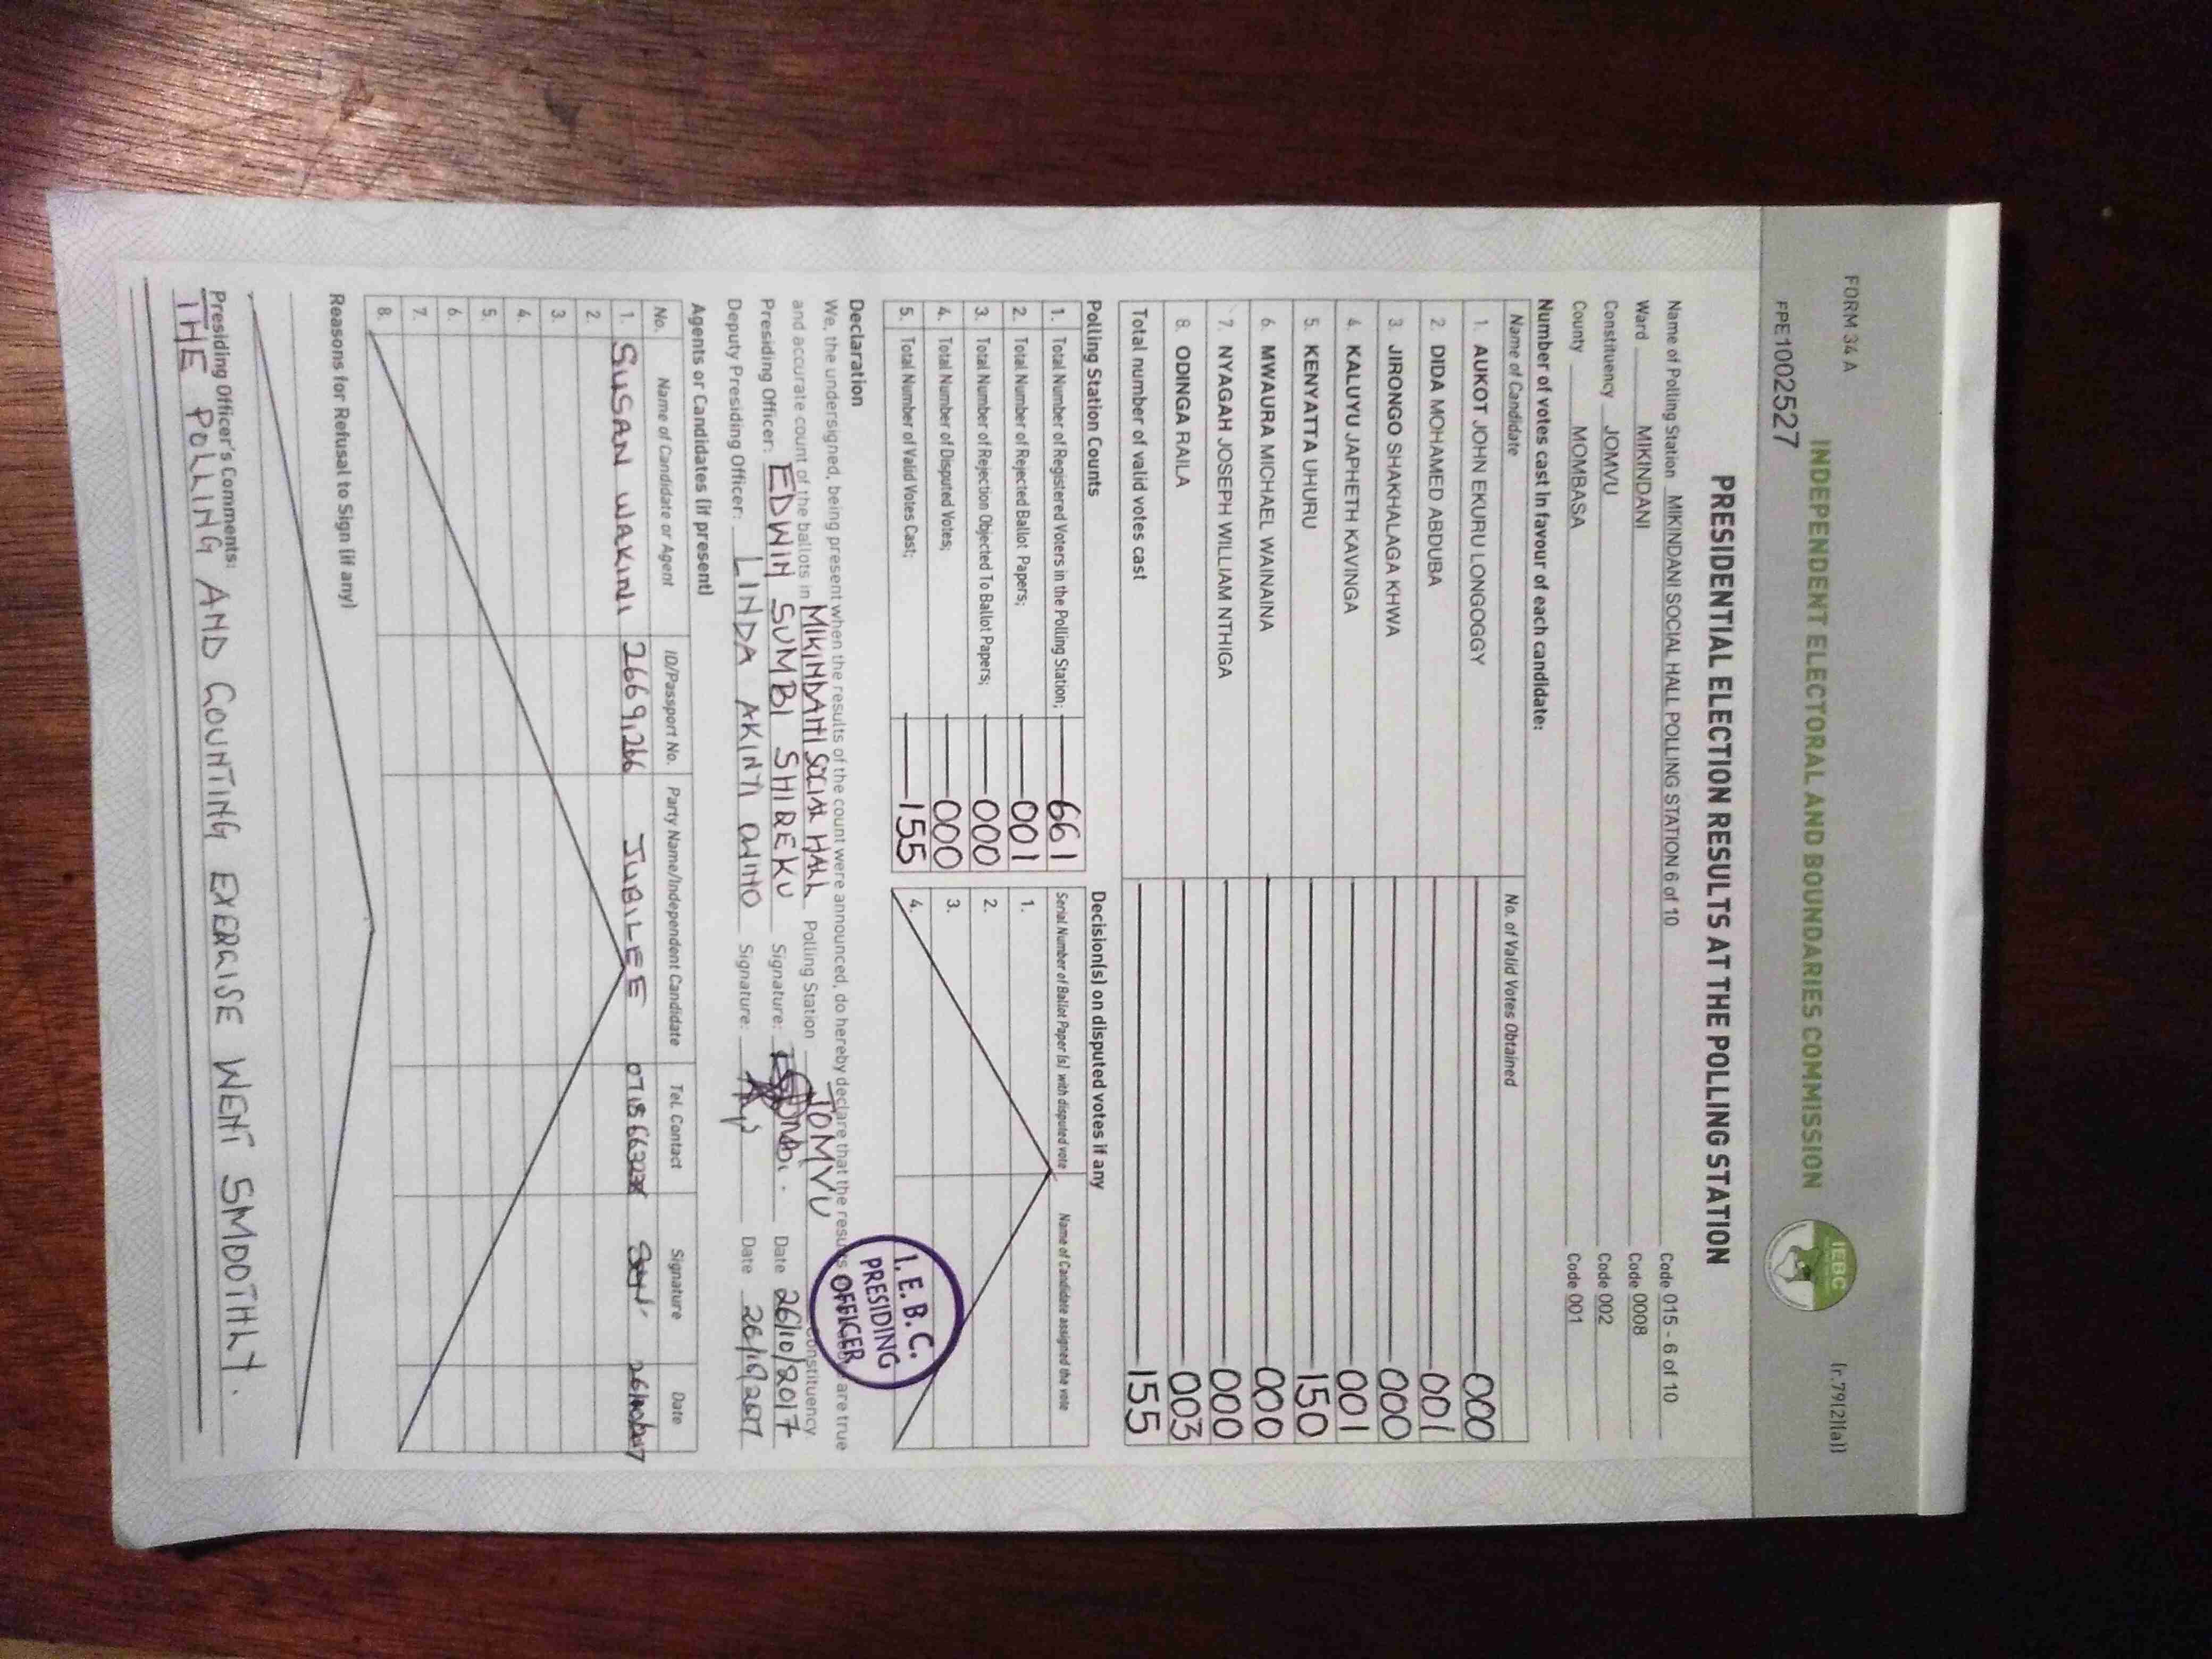 FORM 34 A
(r.79(2)(a))
INDEPENDENT ELECTORAL AND BOUNDARIES COMMISSION
IEBC
FPE1002527
PRESIDENTIAL ELECTION RESULTS AT THE POLLING STATION
Name of Polling Station MIKINDANI SOCIAL HALL POLLING STATION 6 of 10 Code 015 - 6 of 10
Ward MIKINDANI Code 0008
Constituency JOMVU Code 002
County MOMBASA Code 001
Number of votes cast in favour of each candidate:
Name of Candidate No. of Valid Votes Obtained
1. AUKOT JOHN EKURU LONGOGGY 000
2. DIDA MOHAMED ABDUBA 001
3. JIRONGO SHAKHALAGA KHWA 000
4. KALUYU JAPHETH KAVINGA 001
5. KENYATTA UHURU 150
6. MWAURA MICHAEL WAINAINA 000
7. NYAGAH JOSEPH WILLIAM NTHIGA 000
8. ODINGA RAILA 003
Total number of valid votes cast 155
Polling Station Counts
1. Total Number of Registered Voters in the Polling Station; 661
2. Total Number of Rejected Ballot Papers; 001
3. Total Number of Rejection Objected To Ballot Papers; 000
4. Total Number of Disputed Votes; 000
5. Total Number of Valid Votes Cast; 155
Decision(s) on disputed votes if any
Serial Number of Ballot Paper (s) with disputed vote Name of Candidate assigned the vote
1.
2.
3.
4.
I.E.B.C.
PRESIDING
OFFICER
Declaration
We, the undersigned, being present when the results of the count were announced, do hereby declare that the results are true
and accurate count of the ballots in MIKINDANI SOCIAL HALL Polling Station JOMVU Constituency.
Presiding Officer: EDWIN SUMBI SHIREKU Signature: Date 26/10/2017
Deputy Presiding Officer: LINDA AKINYI Signature: Date 26/10/2017
Agents or Candidates (if present)
No. Name of Candidate or Agent ID/Passport No. Party Name/Independent Candidate Tel. Contact Signature Date
1. SUSAN WAKINI 26691266 JUBILEE 26/10/2017
2.
3.
4.
5.
6.
7.
8.
Reasons for Refusal to Sign (if any)
Presiding Officer's Comments:
THE POLLING AND COUNTING EXERCISE WENT SMOOTHLY.